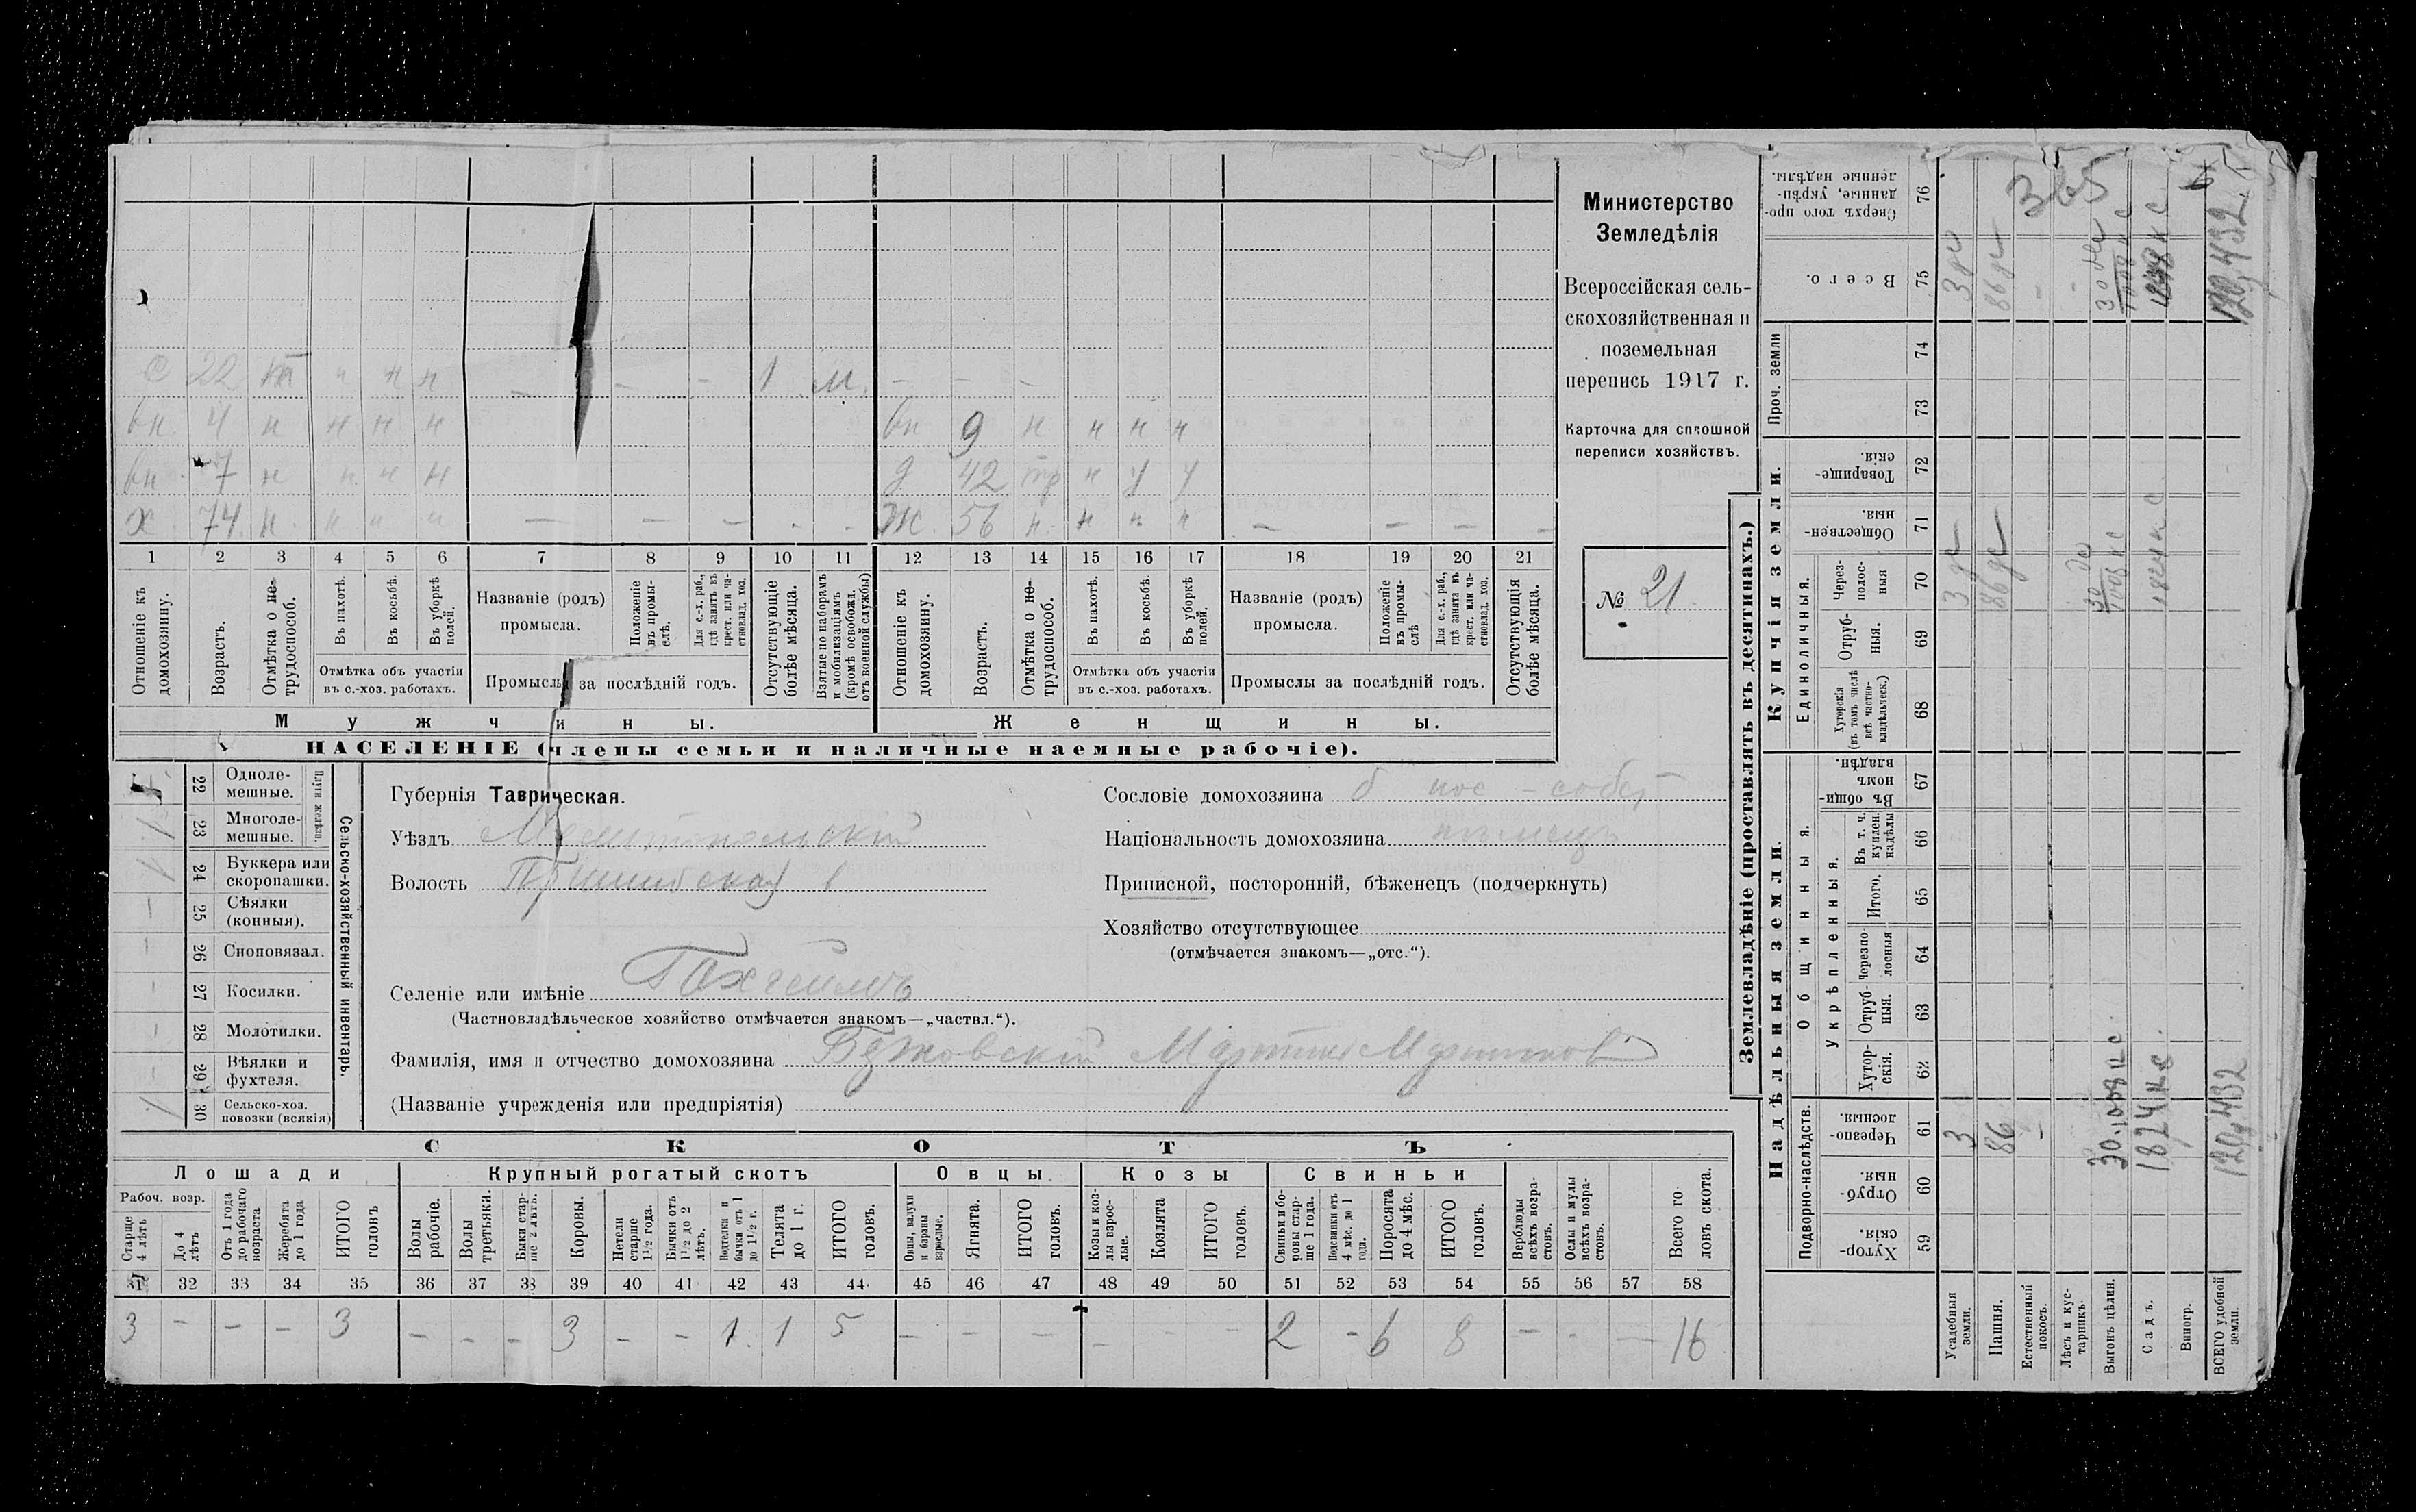 С 22 н н н — — — 1 м. — — —
вн 4 н н н н вн 9 н н н н
вн 7 н н н н д 42 тр н у у
х 74 н. н н н — — — - - Ж 56 н. н н н — — — — —
1 2 3 4 5 6 7 8 9 10 11 12 13 14 15 16 17 18 19 20 21
Отношеніе къ домохозяину.
Возрастъ.
Отмѣтка о не-трудоспособ.
Въ пахотѣ.
Въ косьбѣ.
Въ уборкѣ полей.
Отмѣтка объ участіи въ с.-хоз. работахъ.
Названіе (родъ) промысла.
Положеніе въ промы-слѣ.
Для с.-х. раб., гдѣ занятъ въ крест. или ча-стновлад. хоз.
Промыслы за послѣдній годъ.
Отсутствующіе болѣе мѣсяца.
Взятые по наборамъ и мобилизаціямъ (кромѣ освобожд. отъ военной службы)
Отношеніе къ домохозяину.
Возрастъ.
Отмѣтка о не-трудоспособ.
Въ пахотѣ.
Въ косьбѣ.
Въ уборкѣ полей.
Отмѣтка объ участіи въ с.-хоз. работахъ.
Названіе (родъ) промысла.
Положеніе въ промы-слѣ
Для с.-х. раб., гдѣ занята въ крест. или ча-стновлад. хоз.
Промыслы за послѣдній годъ.
Отсутствующія болѣе мѣсяца.
Мужчины. Женщины.
НАСЕЛЕНІЕ (члены семьи и наличные наемные рабочіе).
Министерство
Земледѣлія
Всероссійская сель-
скохозяйственная и
поземельная
перепись 1917 г.
Карточка для сплошной
переписи хозяйствъ.
№ 21.
22 Одноле-мешные.
1 23 Многоле-мешные.
Плуги желѣзн.
1 24 Буккера или скоропашки.
— 25 Сѣялки (конныя).
— 26 Сноповязал.
- 27 Косилки.
- 28 Молотилки.
- 29 Вѣялки и фухтеля.
1 30 Сельско-хоз. повозки (всякія)
Сельско-хозяйственный инвентарь.
Губернія Таврическая.
Уѣздъ Мелитопольскій
Волость Пришибская
Селеніе или имѣніе Гохгеймъ
(Частновладѣльческое хозяйство отмѣчается знакомъ—„частвл.“).
Фамилія, имя и отчество домохозяина Мартинъ Мартинов
(Названіе учрежденія или предпріятія)
Сословіе домохозяина б пос - собст
Національность домохозяина нѣмецъ
Приписной, посторонній, бѣженецъ (подчеркнуть)
Хозяйство отсутствующее
(отмѣчается знакомъ—„отс.“).
СКОТЪ
Лошади Крупный рогатый скотъ Овцы. Козы Свиньи
Рабоч. возр.
Старше 4 лѣтъ
До 4 лѣтъ
Отъ 1 года до рабочаго возраста
Жеребята до 1 года
ИТОГО головъ
Волы рабочіе.
Волы третьяки.
Быки стар-ше 2 лѣтъ.
Коровы.
Нетели старше 1½ года.
Бычки отъ 1½ до 2 лѣтъ.
Подтелки и бычки отъ 1 до 1½ г.
Телята до 1 г.
ИТОГО головъ.
Овцы, валухи и бараны взрослые.
Ягнята.
ИТОГО головъ.
Козы и коз-лы взрос-лые.
Козлята
ИТОГО головъ.
Свиньи и бо-ровы стар-ше 1 года.
Подсвинки отъ 4 мѣс. до 1 года.
Поросята до 4 мѣс.
ИТОГО головъ.
Верблюды всѣхъ возра-стовъ.
Ослы и мулы всѣхъ возра-стовъ.
Всего го-ловъ скота.
31 32 33 34 35 36 37 38 39 40 41 42 43 44 45 46 47 48 49 50 51 52 53 54 55 56 57 58
3 - - - 3 - - - 3 - - 1. 1 5 - - - - - - 2 - 6 8 - - - 16
Землевладѣніе (проставлять въ десятинахъ.)
Надѣльныя земли. Купчія земли. Проч. земли
Подворно-наслѣдств. Общинныя. Единоличныя.
Укрѣпленныя.
59 Хутор-скія.
60 Отруб-ныя.
61 Черезпо-лосныя.
62 Хутор-скія.
63 Отруб-ныя.
64 Черезпо-лосныя
65 Итого.
66 Въ т. ч. куплен. надѣлы
67 Въ общи-номъ владѣн.
68 Хуторскія (въ томъ числѣ всѣ частно-владѣльческ.)
69 Отруб-ныя.
70 Через-полос-ныя
71 Обществен-ныя.
72 Товарище-скія.
73
74
75 Всего.
76 Сверхъ того про-данные, укрѣп-ленные надѣлы.
365
Усадебныя земли. 3 3 де 3 де
Пашня. 86 86 де 86 де
Естественный покосъ. - -
Лѣсъ и кус-тарникъ. -
Выгонъ цѣлин. 30. 1008 к с. 30 де 1008 к с 30 де 1008 к с
Садъ. 1824 к с. 1824 к с
Виногр.
ВСЕГО удобной земли. 120,432 120,432